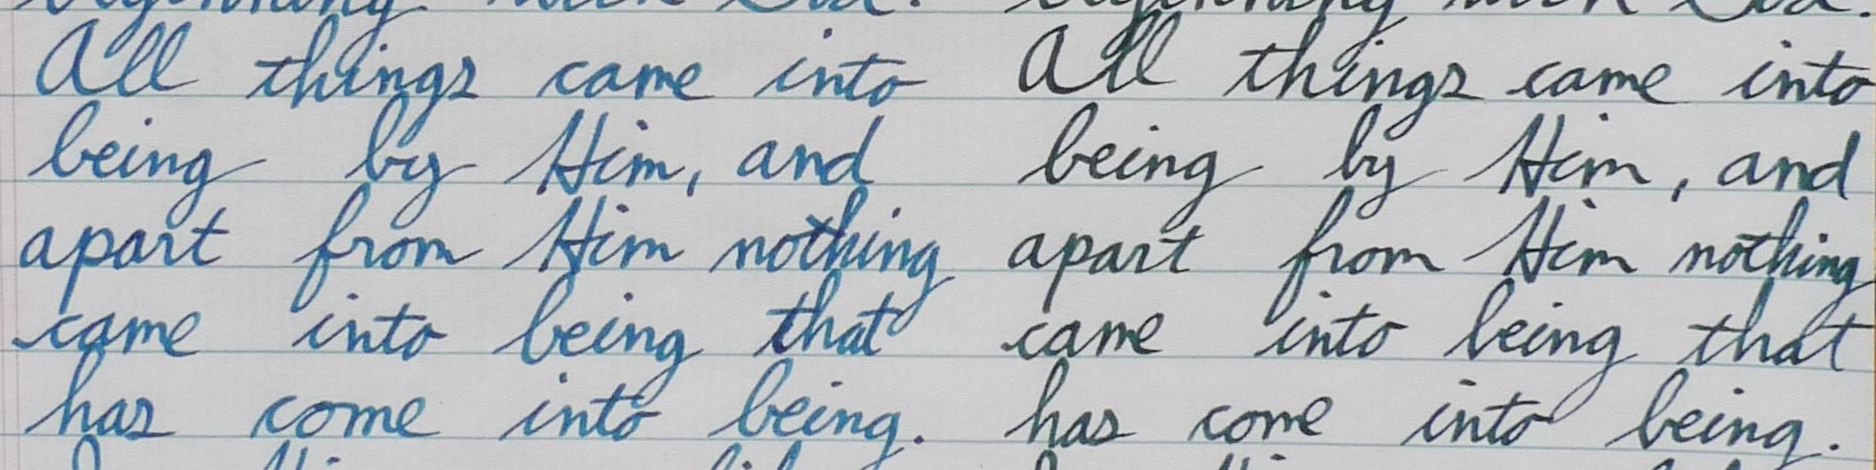 beginning with God. beginning with God.
All things came into All things came into
being by Him, and being by Him, and
apart from Him nothing apart from Him nothing
came into being that came into being that
has come into being. has come into being.